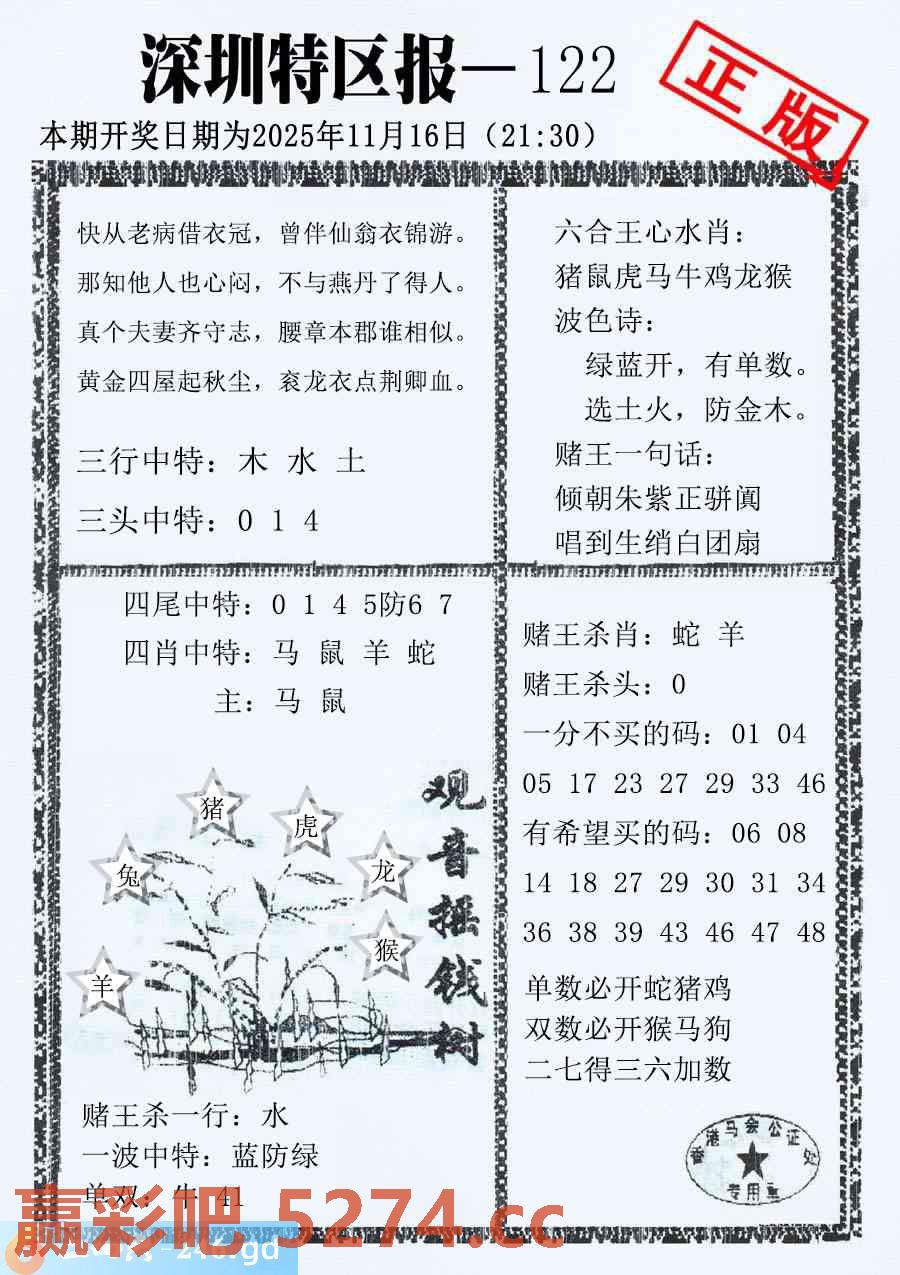 深圳特区报—122
正版
本期开奖日期为2025年11月16日（21:30）
快从老病借衣冠，曾伴仙翁衣锦游。
那知他人也心闷，不与燕丹了得人。
真个夫妻齐守志，腰章本郡谁相似。
黄金四屋起秋尘，衮龙衣点荆卿血。
三行中特：木 水 土
三头中特：0 1 4
六合王心水肖：
猪鼠虎马牛鸡龙猴
波色诗：
绿蓝开，有单数。
选土火，防金木。
赌王一句话：
倾朝朱紫正骈阗
唱到生绡白团扇
四尾中特：0 1 4 5防6 7
四肖中特：马 鼠 羊 蛇
主：马 鼠
观音摇钱树
猪
虎
兔
龙
猴
羊
赌王杀一行：水
一波中特：蓝防绿
单双：牛 41
赌王杀肖：蛇 羊
赌王杀头：0
一分不买的码：01 04
05 17 23 27 29 33 46
有希望买的码：06 08
14 18 27 29 30 31 34
36 38 39 43 46 47 48
单数必开蛇猪鸡
双数必开猴马狗
二七得三六加数
香港马会公证处
专用章
赢彩吧 5274.cc